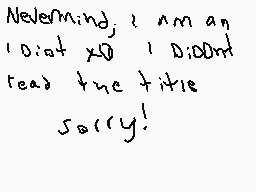 Nevermind, i am an
idiot xD i DiDDnt
read the title
sorry!